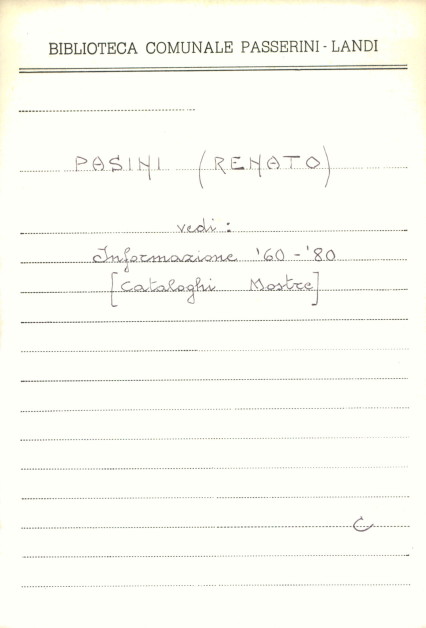 BIBLIOTECA COMUNALE PASSERINI - LANDI
PASINI (RENATO)
vedi :
Informazione '60 - '80
[Cataloghi Mostre]
C